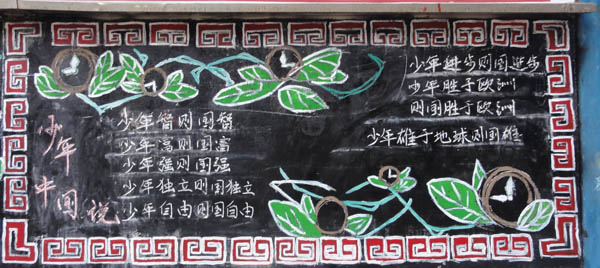 少年中国说
少年智则国智
少年富则国富
少年强则国强
少年独立则国独立
少年自由则国自由
少年進步则国進步
少年胜于欧洲
则国胜于欧洲
少年雄于地球则国雄